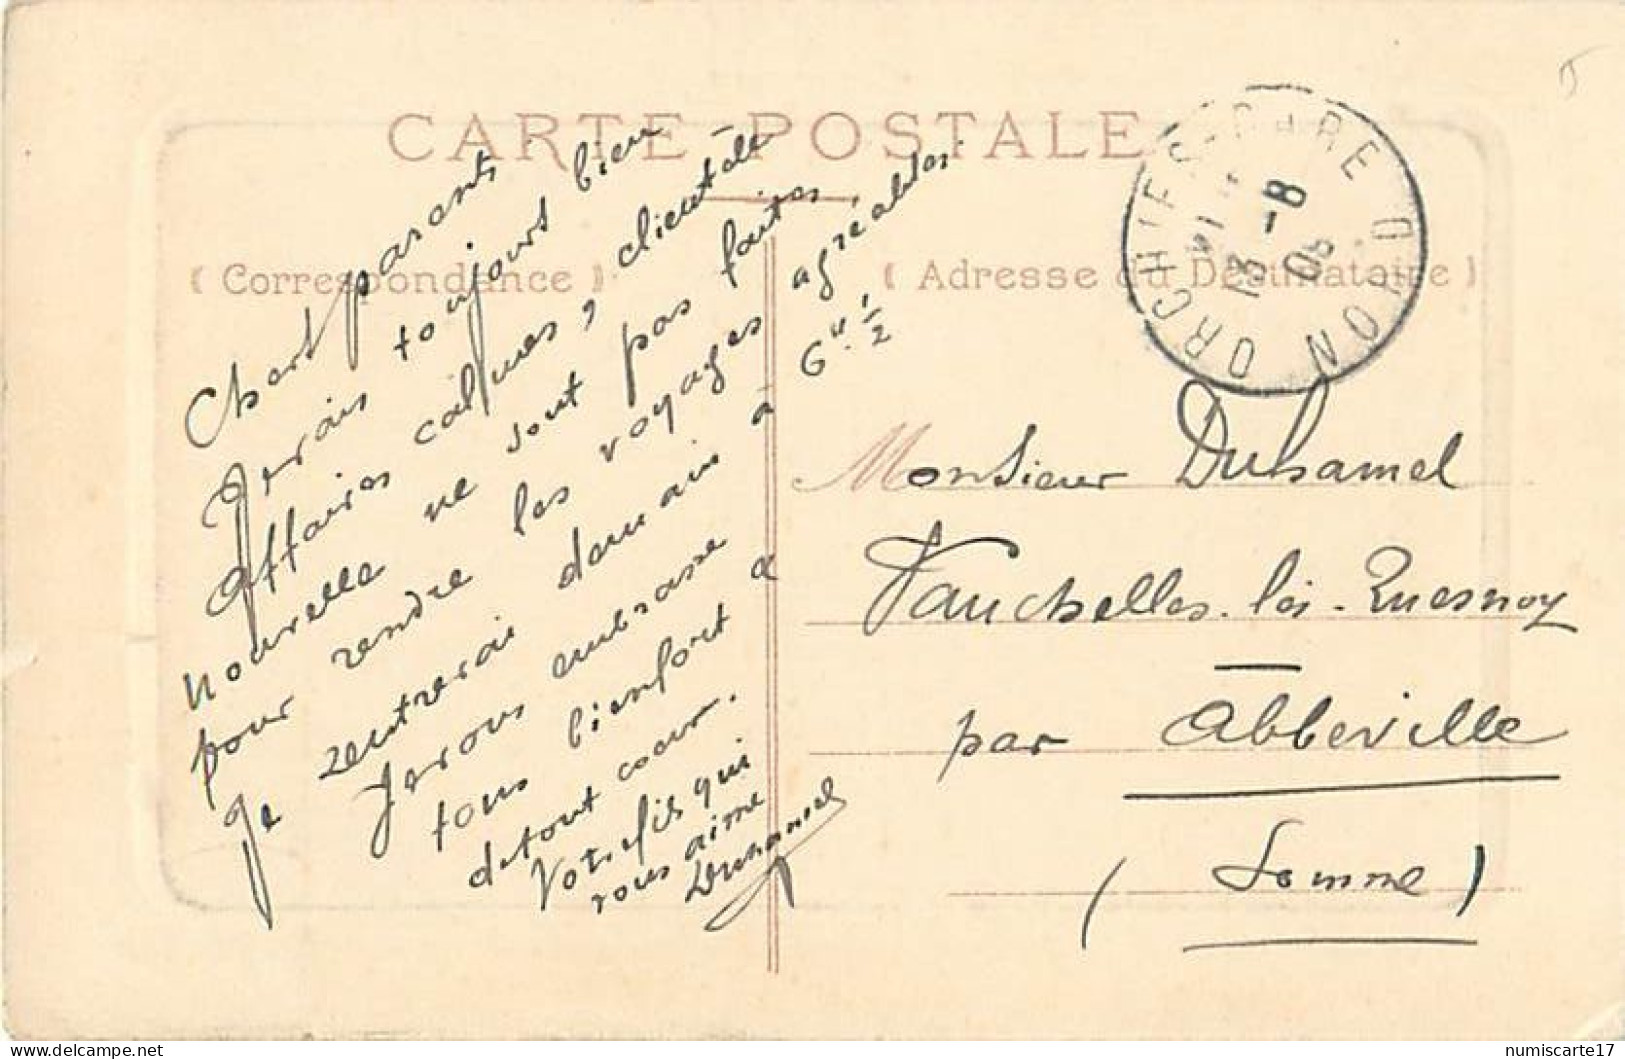 CARTE POSTALE
( Correspondance )
Chers parents
Je vais toujours bien
Affaires calmes, clientèle
nouvelle ne sont pas faites
pour rendre les voyages agréables.
Je rentrerai demain à 6 h. 1/2
Je vous embrasse
tous bien fort &
de tout cœur.
Votre fils qui
vous aime
Duhamel
( Adresse du Destinataire )
ORCHIES-GARE
13 -8
08
NORD
Monsieur Duhamel
Vauchelles-les-Quesnoy
par Abbeville
(Somme)
numiscarte17
www.delcampe.net